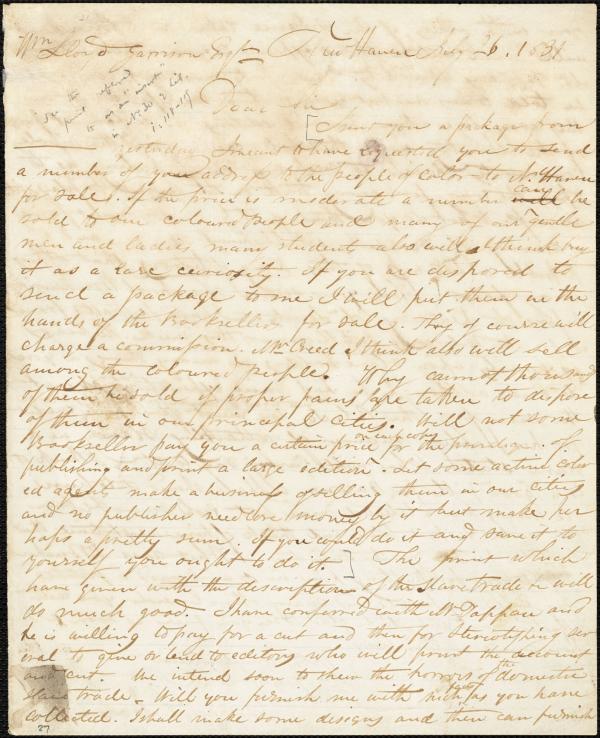 Wm Lloyd Garrison Esqr New Haven July 26. 1831
"see the
print referred
to as an "insert"
in
1: 118-119
Dear Sir
[ I sent you a package from
yesterday I meant to have requested you to send
a number of your address to the people of color to N. Haven
for sale. If the price is moderate a number will can be
sold to our coloured people and many of our gentle
men and ladies many students also will I think buy
it as a rare curiosity. If you are disposed to
send a package to me I will put them in the
hands of the Booksellers for sale. They of course will
charge a commission. Mr Creed I think also will sell
among the coloured people. Why cannot thousands
of them be sold if proper pains are taken to dispose
of them in our principal cities. Will not some
Bookseller pay you a certain price on each copy for the privilege of
publishing and print a large edition. Let some active color
ed agents make a business of selling them in our cities
and no publisher need lose money by it but make per
haps a pretty sum. If you could do it and save it to
yourself you ought to do it. ] The print which
have given with the description of the slave trade will
do much good. I have conferred with Mr Tappan and
he is willing to pay for a cut and then for stereotyping sev
eral to give or lend to editors who will print the account
and cut. We intend soon to shew the horrors of the domestic
slave trade. Will you furnish me with such facts as you have
collected. I shall make some designs and then can furnish
27